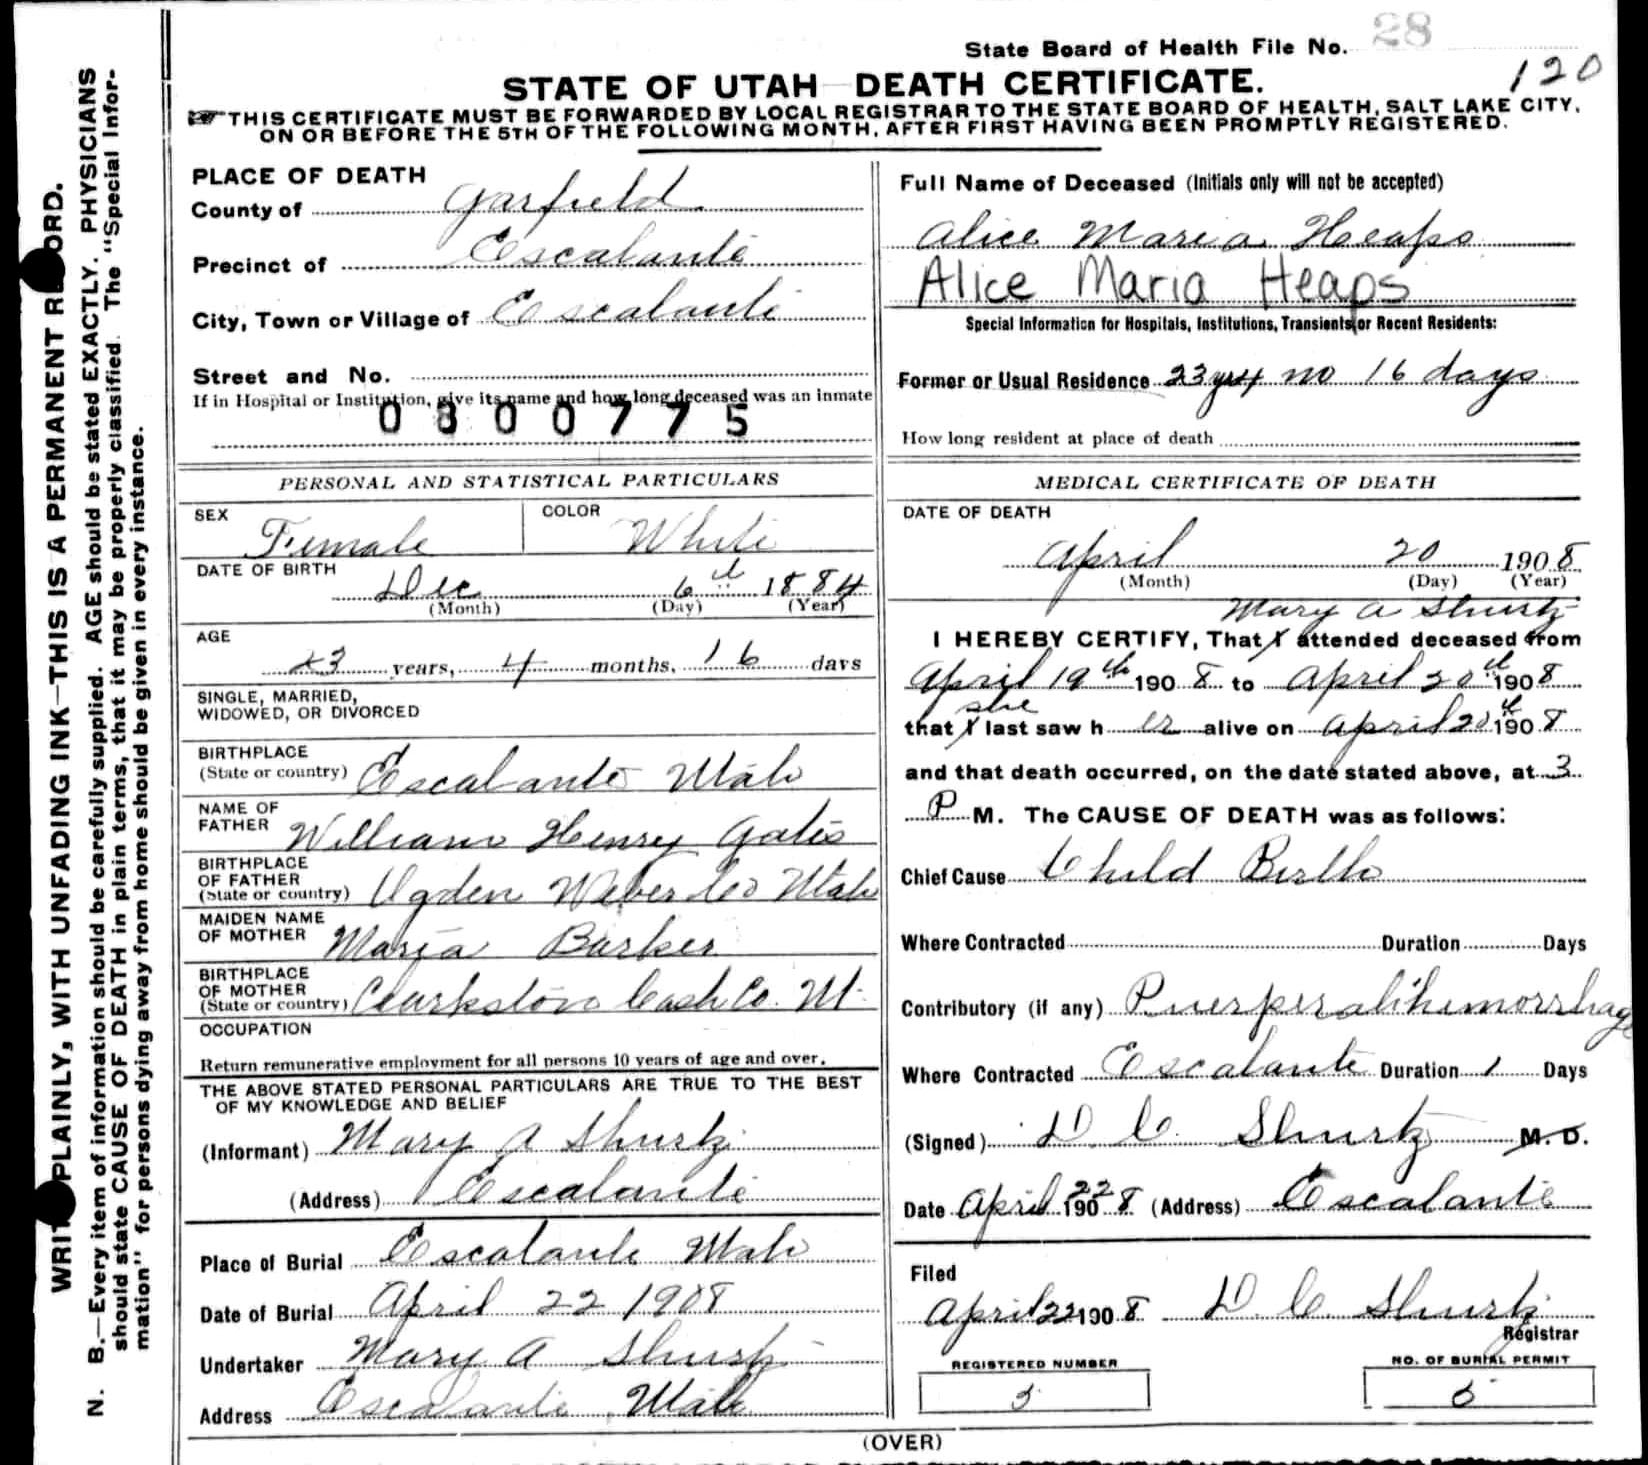 State Board of Health File No. 28
120
STATE OF UTAH DEATH CERTIFICATE.
THIS CERTIFICATE MUST BE FORWARDED BY LOCAL REGISTRAR TO THE STATE BOARD OF HEALTH, SALT LAKE CITY,
ON OR BEFORE THE 5TH OF THE FOLLOWING MONTH, AFTER FIRST HAVING BEEN PROMPTLY REGISTERED.
PLACE OF DEATH
County of Garfield
Precinct of Escalante
City, Town or Village of Escalante
Street and No.
If in Hospital or Institution, give its name and how long deceased was an inmate
0800775
PERSONAL AND STATISTICAL PARTICULARS
SEX Female COLOR White
DATE OF BIRTH
Dec 6th 1884
(Month) (Day) (Year)
AGE
23 years, 4 months, 16 days
SINGLE, MARRIED,
WIDOWED, OR DIVORCED
BIRTHPLACE
(State or country) Escalante Utah
NAME OF
FATHER William Henry Gates
BIRTHPLACE
OF FATHER
(State or country) Ogden Weber Co Utah
MAIDEN NAME
OF MOTHER Maria Barker
BIRTHPLACE
OF MOTHER
(State or country) Clarkston Cash Co. Ut.
OCCUPATION
Return remunerative employment for all persons 10 years of age and over.
THE ABOVE STATED PERSONAL PARTICULARS ARE TRUE TO THE BEST
OF MY KNOWLEDGE AND BELIEF
(Informant) Mary A Shurtz
(Address) Escalante
Place of Burial Escalante Utah
Date of Burial April 22 1908
Undertaker Mary A Shurtz
Address Escalante Utah
Full Name of Deceased (Initials only will not be accepted)
Alice Maria Heaps
Alice Maria Heaps
Special Information for Hospitals, Institutions, Transients, or Recent Residents:
Former or Usual Residence 23 yrs 4 mo 16 days
How long resident at place of death
MEDICAL CERTIFICATE OF DEATH
DATE OF DEATH
April 20 1908
(Month) (Day) (Year)
Mary A Shurtz
I HEREBY CERTIFY, That I attended deceased from
April 19th 1908 to April 20th 1908
she
that I last saw her alive on April 20th 1908
and that death occurred, on the date stated above, at 3
P M. The CAUSE OF DEATH was as follows:
Chief Cause Child Birth
Where Contracted Duration Days
Contributory (if any) Puerperal hemorrhage
Where Contracted Escalante Duration 1 Days
(Signed) D. C. Shurtz M. D.
Date April 22 1908 (Address) Escalante
Filed
April 22 1908 D. C. Shurtz
Registrar
REGISTERED NUMBER
5
NO. OF BURIAL PERMIT
5
(OVER)
WRITE PLAINLY, WITH UNFADING INK—THIS IS A PERMANENT RECORD.
N. B.—Every item of information should be carefully supplied. AGE should be stated EXACTLY. PHYSICIANS
should state CAUSE OF DEATH in plain terms, that it may be properly classified. The "Special Infor-
mation" for persons dying away from home should be given in every instance.